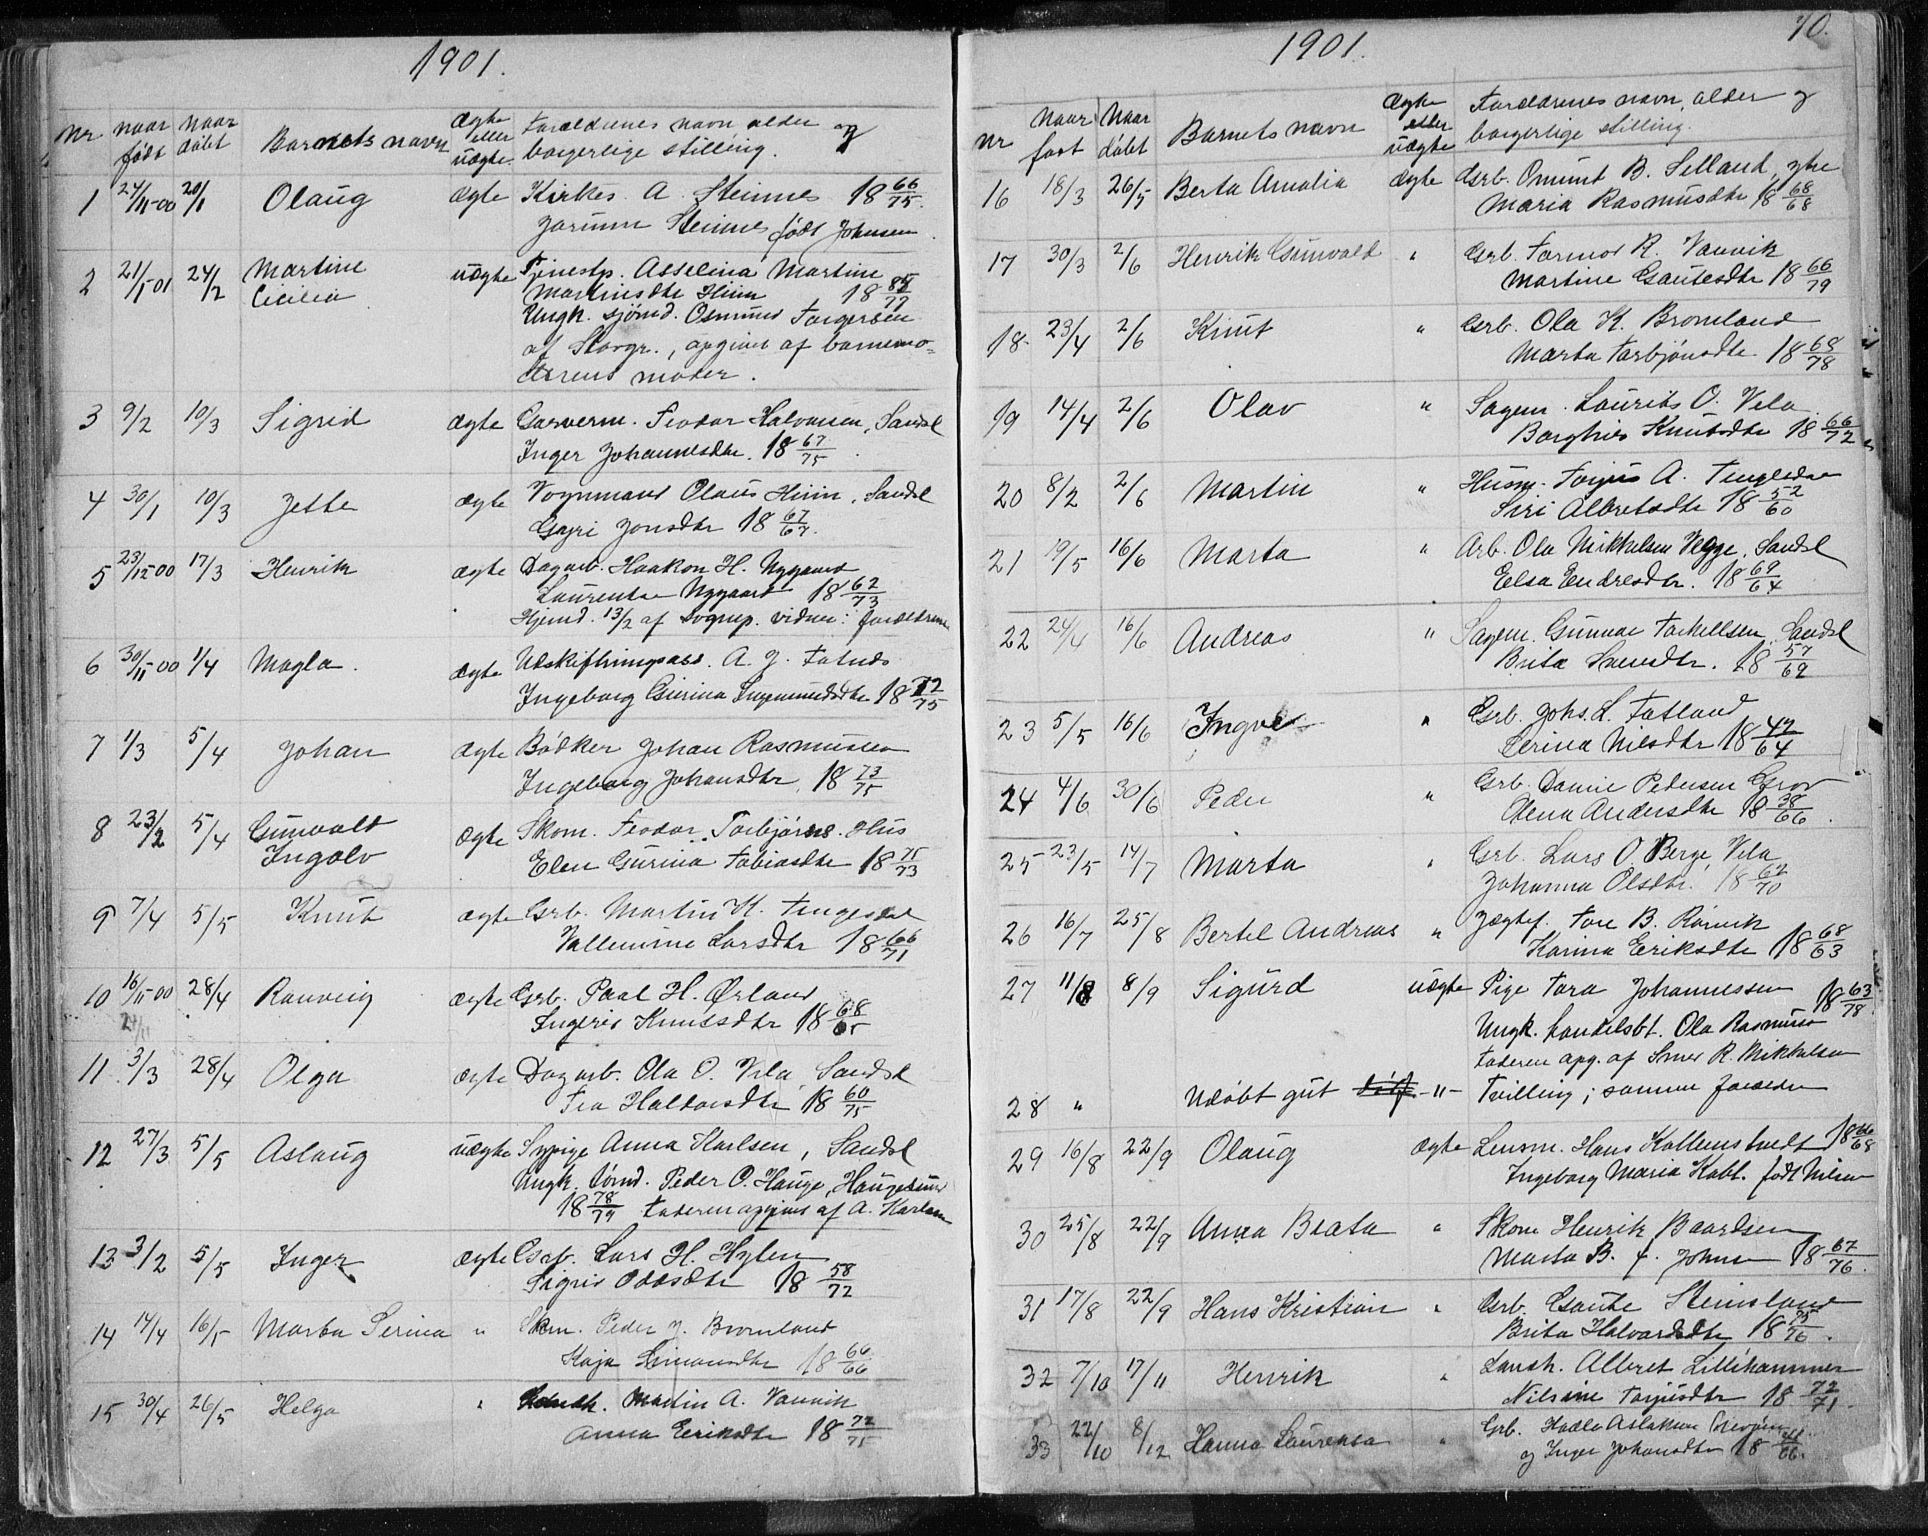 1901.
Nr. naar født Naar døbt Barnets navn ægte eller uægte Forældrenes navn alder og borgerlige stilling.
1 24/11-00 20/1 Olaug ægte Kirkes. A. Steinnes 18 66/75.
Jorunn Steinnes født Johnsen.
2 21/1-01 24/2 Martine uægte Tjenestp. Asselina Martine
Cicilia Martinsdtr Hiim 18 /77
Ungk. sjömd. Osmund Torgersen
af Skorgr., opgivet af barnemo=
derens moder.
3 9/2 10/3 Sigrid ægte Garverm. Feodor Halvorsen, Sandsl
Inger Johannesdtr. 18 67/75.
4 30/1 10/3 Jette ægte Vognmand Olaus Hiim, Sandsl
Guri Jonsdtr 18 67/67.
5 23/12-00 17/3 Henrik ægte Dagarb. Haakon H. Nygaard
Laurentse Nygaard 18 62/73
Hjemd. 13/2 af Sognep. vidner: forældrene
6 30/11-00 1/4 Magla. ægte Udskiftningsass. A. J. Fatnes
Ingeborg Gurina Ingemundsdtr 18 72/75
7 1/3 5/4 Johan ægte Bødker Johan Rasmussen
Ingeborg Johansdtr. 18 73/75
8 23/2 5/4 Gunvald ægte Skom. Feodor Torbjørns. Hus
Ingolv Elen Gurina Tobiasdtr 18 75/73
9 7/4 5/5 Knut ægte Grb. Martin K. Tengesdal
Vallemine Larsdtr 18 66/71
10 16/11-00 28/4 Ranveig ægte Grb. Paal H. Ørland
Ingerid Knutsdtr 18 68/65
11 3/3 28/4 Olga ægte Dagarb. Ola O. Vela Sandsl
Tea Haldorsdtr 18 60/75
12 27/3 5/5 Aslaug uægte Sypige Anna Karlsen, Sandsl
Ungk. tømd. Peder O. Hauge, Haugesund
18 78/79 faderen opgivet af A. Karlsen
13 3/2 5/5 Inger ægte Grb. Lars H. Hylen
Sigrid Oddsdtr 18 58/72
14 14/4 16/5 Marta Serina " Skm. Peder J. Bromland
Kaja Simonsdtr 18 66/66
15 30/4 26/5 Helga " Martin A. Vanvik
Anna Eriksdtr 18 72/75
1901. 70.
Nr Naar født Naar døbt Barnets navn Ægte eller uægte Forældrenes navn, alder og borgerlige stilling.
16 18/3 26/5 Berta Amalia ægte Grb. Omund B. Selland, ytre
Maria Rasmusdtr 18 68/68
17 30/3 2/6 Henrik Gunvald " Grb. Tormod R. Vanvik
Martine Gautesdtr 18 66/79
18. 23/4 2/6 Knut " Grb. Ola K. Bromland
Marta Torbjönsdtr 18 68/78
19 14/4 2/6 Olav " Sagem. Laurits O. Vela
Borghild Knutsdtr 18 66/72
20 8/2 2/6 Martin " Husm. Torjus A. Tengesdal
Siri Albretsdtr 18 52/60
21 19/5 16/6 Marta " Arb. Ola Mikkelsen Vegge, Sandsl
Elsa Endresdtr. 18 69/64
22 24/4 16/6 Andreas " Sagem. Gunnar Torkellsen, Sandsl
Brita Svendsdtr. 18 57/62
23 5/5 16/6 Ingve " Grb. Johs. L. Fatland
Serina Nilsdtr 18 42/64
24 4/6 30/6 Peder " Grb. Danie Pedersen Grov
Olena Andersdtr 18 38/66.
25 23/5 14/7 Marta " Grb. Lars O. Berge, Vela
Johanna Olsdtr. 18 62/70
26 16/7 25/8 Bertel Andreas " Jægtef. Tore B. Rørvik
Karina Eriksdtr 18 68/63
27 11/8 8/9 Sigurd uægte Pige Tora Johannessen 18 63/78
Ungk. handelsbt. Ola Rasmussen
faderen opg. af Smed R. Mikkelsen
28 " Udøbt gut -"- Tvilling; samme forældre
29 16/8 22/9 Olaug ægte Lensm. Hans Kaltenstvedt 18 66/68
Ingeborg Maria Kalt. født Nilsen
30 25/8 22/9 Anna Beata " Skom Henrik Baardsen
Marta B. f. Johns 18 67/76.
31 17/8 22/9 Hans Kristian " Grb. Gaute Steinsland
Brita Halvorsdtr 18 75/76.
32 7/10 17/11 Henrik " Landh. Albret Lillehammer
Nilsine Torjusdtr 18 72/71.
33 22/10 8/12 Hanna Laurensa " Grb. Hadle Aslaksen
og Inger Johansdtr 18 /66.